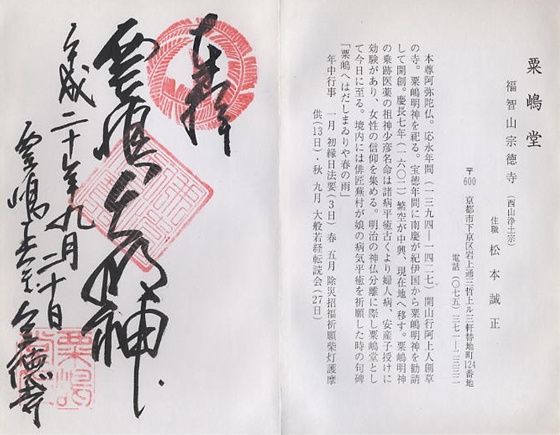 粟嶋堂
福智山宗徳寺（西山浄土宗）
住職　松本誠正
〒600　京都市下京区岩上通三哲上ル三軒替地町124番地
電話（〇七五）三七一―二三三二
本尊阿弥陀仏。応永年間（一三九四―一四二七）開山行阿上人創草
の寺。粟嶋明神を祀る。宝徳年間に南慶が紀伊国から粟嶋明神を勧請
して開創。慶長七年（一六〇二）繁空が中興、現在地へ移す。粟嶋明神
の乗跡医薬の祖神少彦名命は諸病平癒古くより婦人病、安産子授けに
効験があり、女性の信仰を集める。明治の神仏分離に際し粟嶋堂とし
て今日に至る。境内には俳匠蕪村が娘の病気平癒を祈願した時の句碑
「粟嶋へはだしまゐりや春の雨」
年中行事　一月　初縁日法要（3日）春　五月　除災招福祈願柴灯護摩
供（13日）・秋　九月　大般若経転読会（27日）
奉拝
粟嶋大明神
平成二十年九月二十日
粟嶋堂　宗徳寺